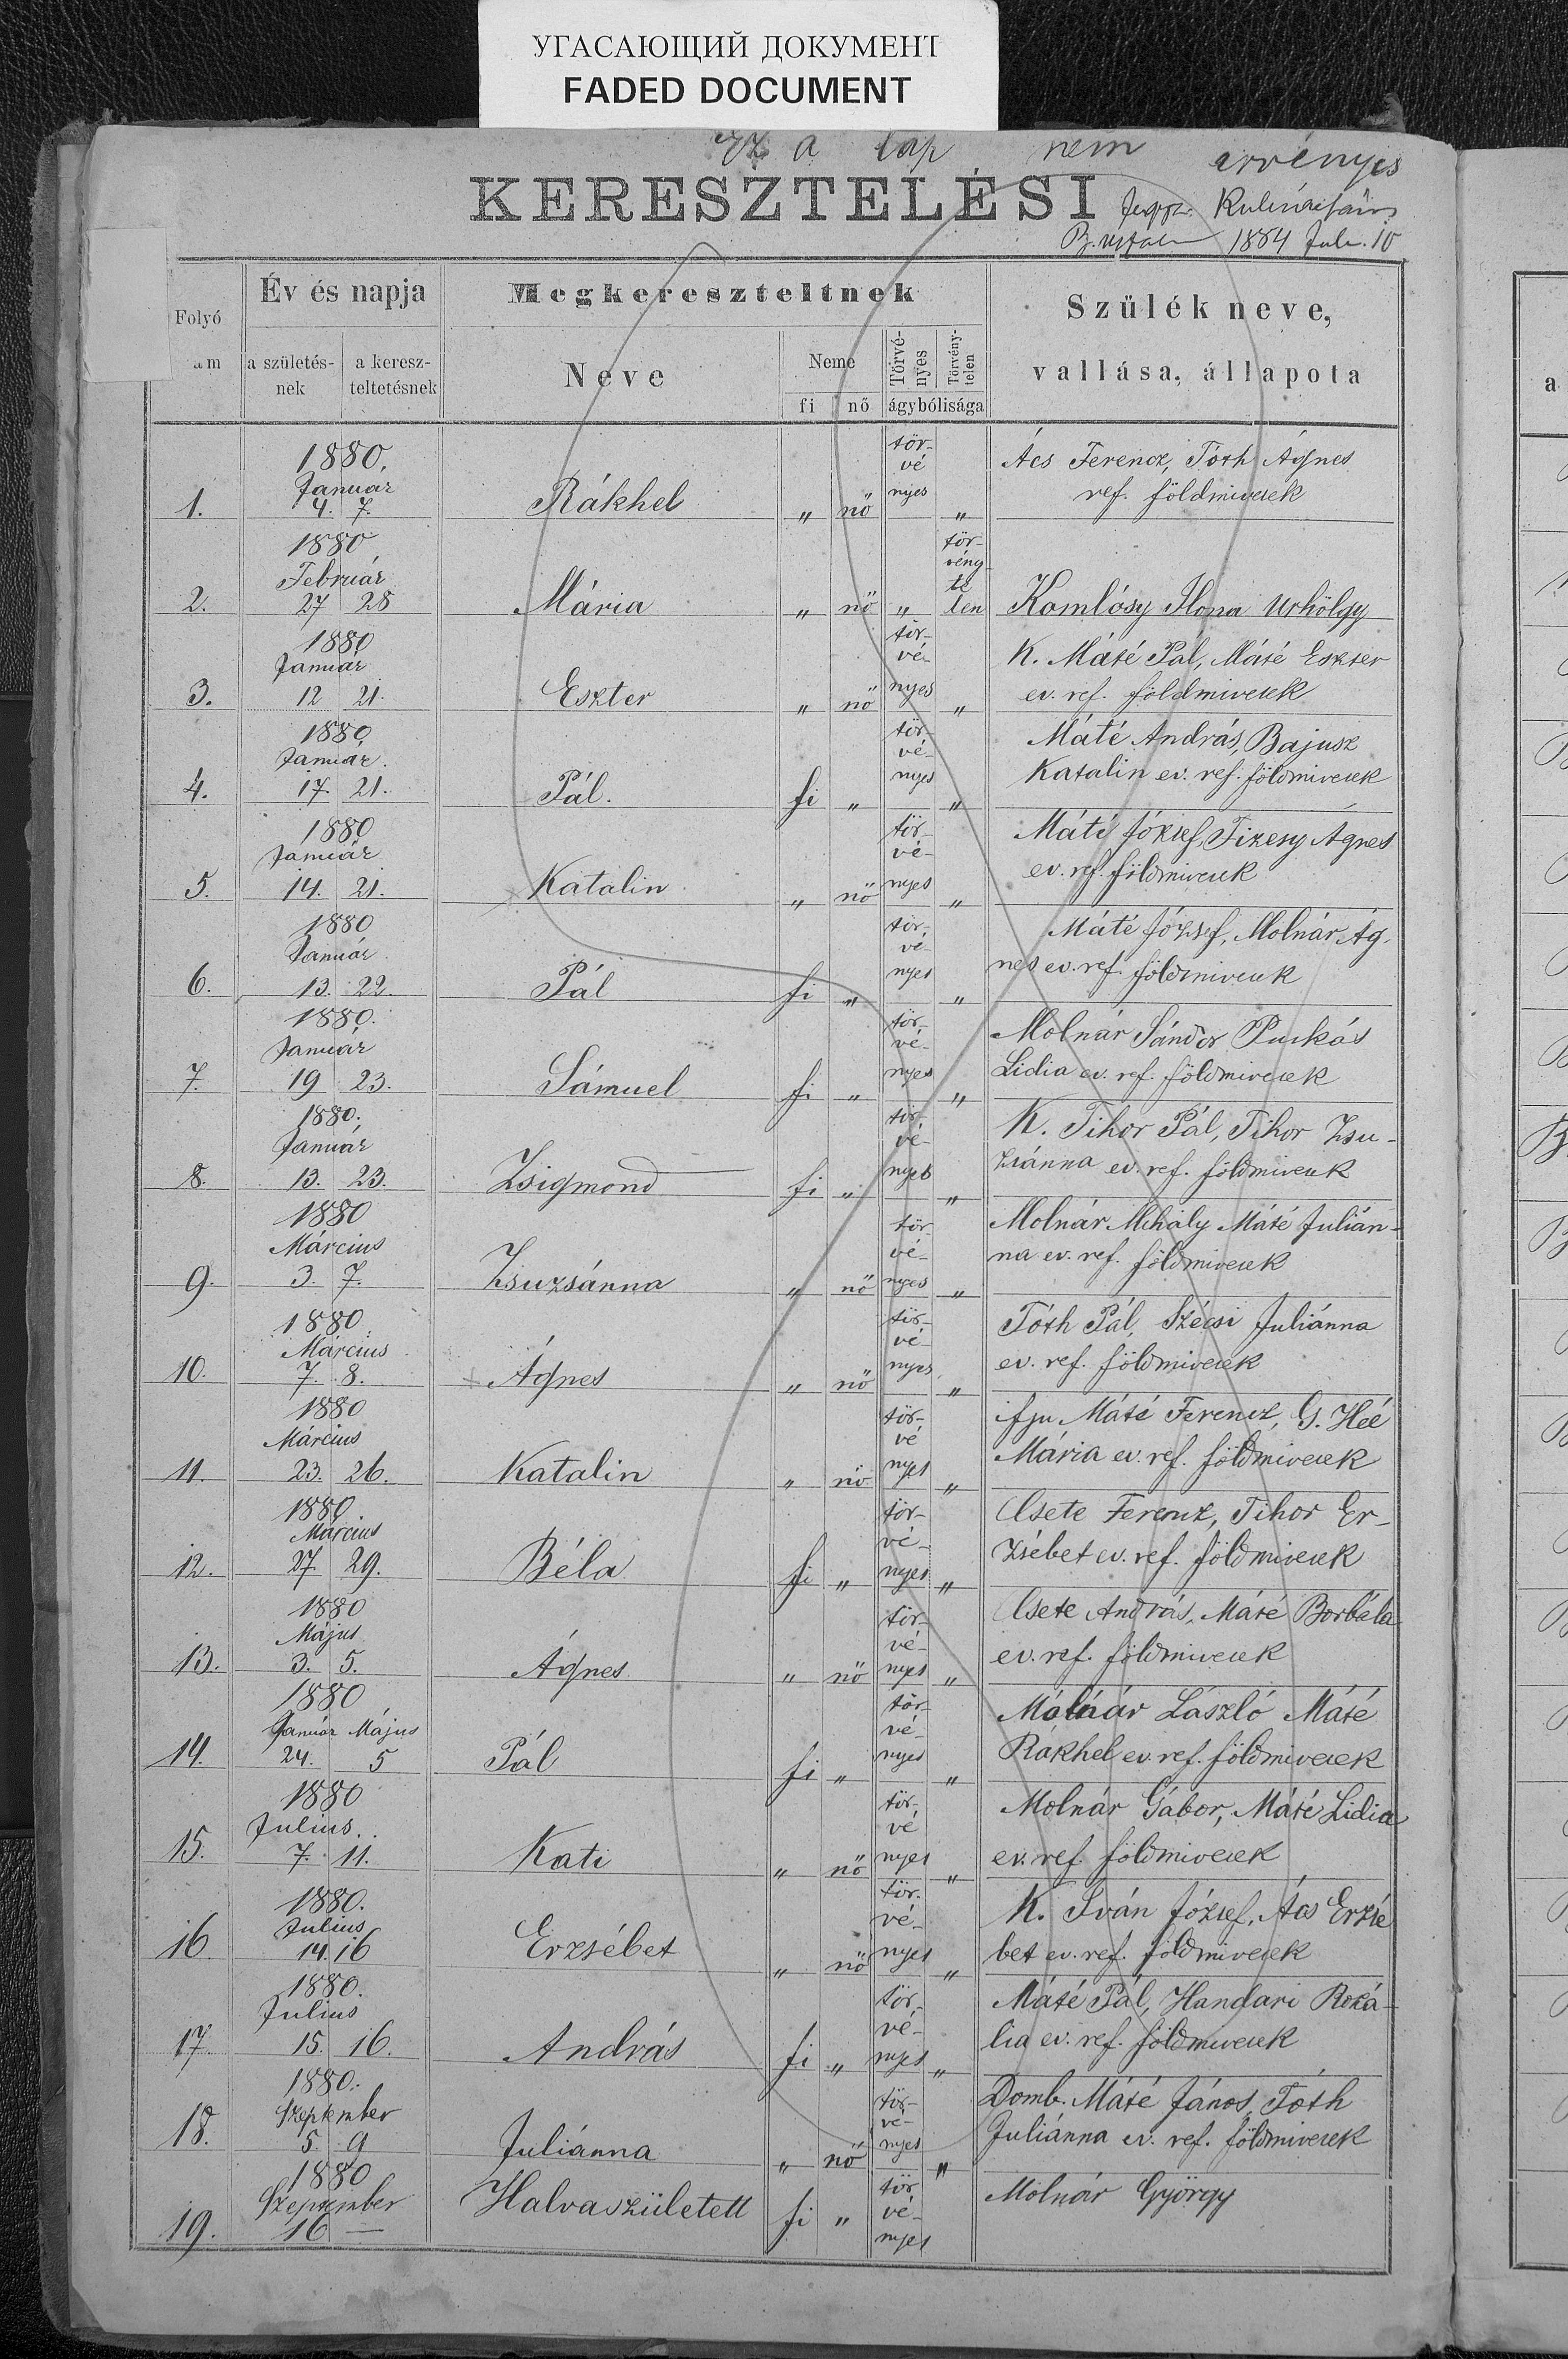 УГАСАЮЩИЙ ДОКУМЕНТ
FADED DOCUMENT
Ez a lap nem érvényes
1884 Jul. 10
KERESZTELÉSI
Folyó
Év és napja
a születés-
nek
a keresz-
teltetésnek
Megkereszteltnek
Neve
Neme
fi nő
Törvé-
nyes
Törvény-
telen
ágybólisága
Szülék neve,
vallása, állapota
1880.
Január
1. 4. 7. Rákhel " nő tör-
vé
nyes "
Ács Ferencz, Tóth Ágnes
ref. földmivesek
1880
Február
2. 27 28 Mária " nő " tör-
vény
te
len
Komlósy Ilona urhölgy
1880
Január
3. 12 21. Eszter " nő tör-
vé-
nyes "
K. Máté Pál, Máté Eszter
ev. ref. földmivesek
1880
Január.
4. 17. 21. Pál. fi " tör-
vé-
nyes "
Máté András, Bajusz
Katalin ev. ref. földmivesek
1880
Január
5. 14. 21. Katalin " nő tör-
vé-
nyes "
Máté József, Fizesy Ágnes
ev. ref. földmivesek
1880
Január
6. 13. 22. Pál fi " tör-
vé-
nyes "
Máté József, Molnár Ág-
nes ev. ref. földmivesek
1880.
Január
7. 19 23. Sámuel fi " tör-
vé-
nyes "
Molnár Sándor Puskás
Lidia ev. ref. földmivesek
1880.
Január
8. 13. 23. Zsigmond fi " tör-
vé-
nyes "
K. Tihor Pál, Tihor Zsu-
zsánna ev. ref. földmivesek
1880
Március
9. 3. 7. Zsuzsánna " nő tör-
vé-
nyes "
Molnár Mihály Máté Julián-
na ev. ref. földmivesek
1880
Március
10. 7. 8. Ágnes " nő tör-
vé-
nyes "
Tóth Pál, Szécsi Juliánna
ev. ref. földmivesek
1880
Március
11. 23. 26. Katalin " nő tör-
vé
nyes "
ifju Máté Ferencz, G. Heé
Mária ev. ref. földmivesek
1880
Március
12. 27. 29. Béla fi " tör-
vé-
nyes "
Csete Ferencz, Tihor Er-
zsébet ev. ref. földmivesek
1880
Május
13. 3. 5. Ágnes " nő tör-
vé-
nyes "
Csete András, Máté Borbála
ev. ref. földmivesek
1880
Január Május
14. 24. 5 Pál fi " tör-
vé-
nyes "
Molnár László Máté
Rákhel ev. ref. földmivesek
1880
Julius.
15. 7. 11. Kati " nő tör-
vé
nyes "
Molnár Gábor, Máté Lidia
ev. ref. földmivesek
1880.
Julius
16 14. 16 Erzsébet " nő tör-
vé-
nyes "
K. Iván József, Ács Erzsé
bet ev. ref. földmivesek
1880.
Julius
17. 15. 16. András fi " tör-
vé-
nyes "
Máté Pál, Handari Rozá-
lia ev. ref. földmivesek
1880.
Szeptember
18. 5. 9 Juliánna " nő tör-
vé-
nyes "
Domb. Máté János, Tóth
Juliánna ev. ref. földmivesek
1880
Szeptember
19. 16 — Halvaszületett fi " tör
vé-
nyes
Molnár György